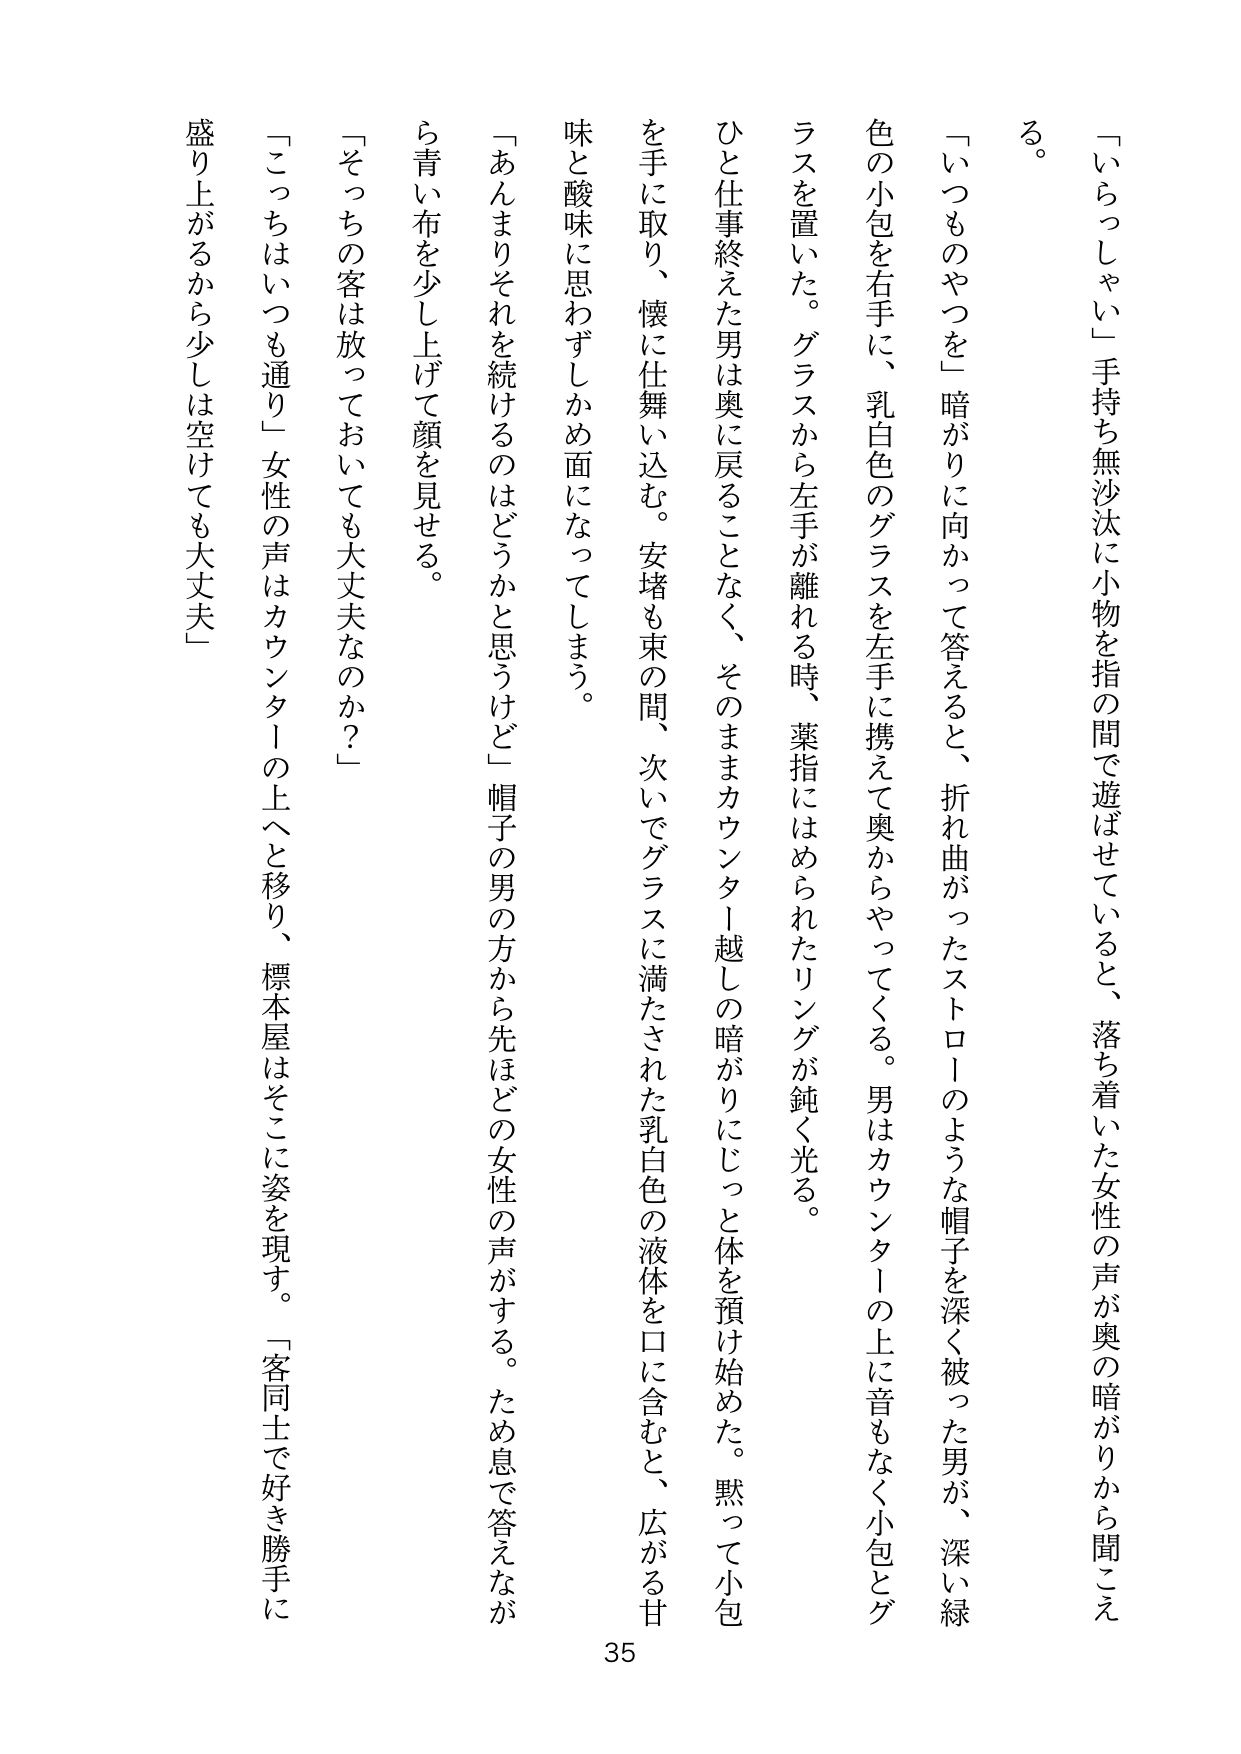 「いらっしゃい」手持ち無沙汰に小物を指の間で遊ばせていると、落ち着いた女性の声が奥の暗がりから聞こえ
る。
「いつものやつを」暗がりに向かって答えると、折れ曲がったストローのような帽子を深く被った男が、深い緑
色の小包を右手に、乳白色のグラスを左手に携えて奥からやってくる。男はカウンターの上に音もなく小包とグ
ラスを置いた。グラスから左手が離れる時、薬指にはめられたリングが鈍く光る。
ひと仕事終えた男は奥に戻ることなく、そのままカウンター越しの暗がりにじっと体を預け始めた。黙って小包
を手に取り、懐に仕舞い込む。安堵も束の間、次いでグラスに満たされた乳白色の液体を口に含むと、広がる甘
味と酸味に思わずしかめ面になってしまう。
「あんまりそれを続けるのはどうかと思うけど」帽子の男の方から先ほどの女性の声がする。ため息で答えなが
ら青い布を少し上げて顔を見せる。
「そっちの客は放っておいても大丈夫なのか？」
「こっちはいつも通り」女性の声はカウンターの上へと移り、標本屋はそこに姿を現す。「客同士で好き勝手に
盛り上がるから少しは空けても大丈夫」
35